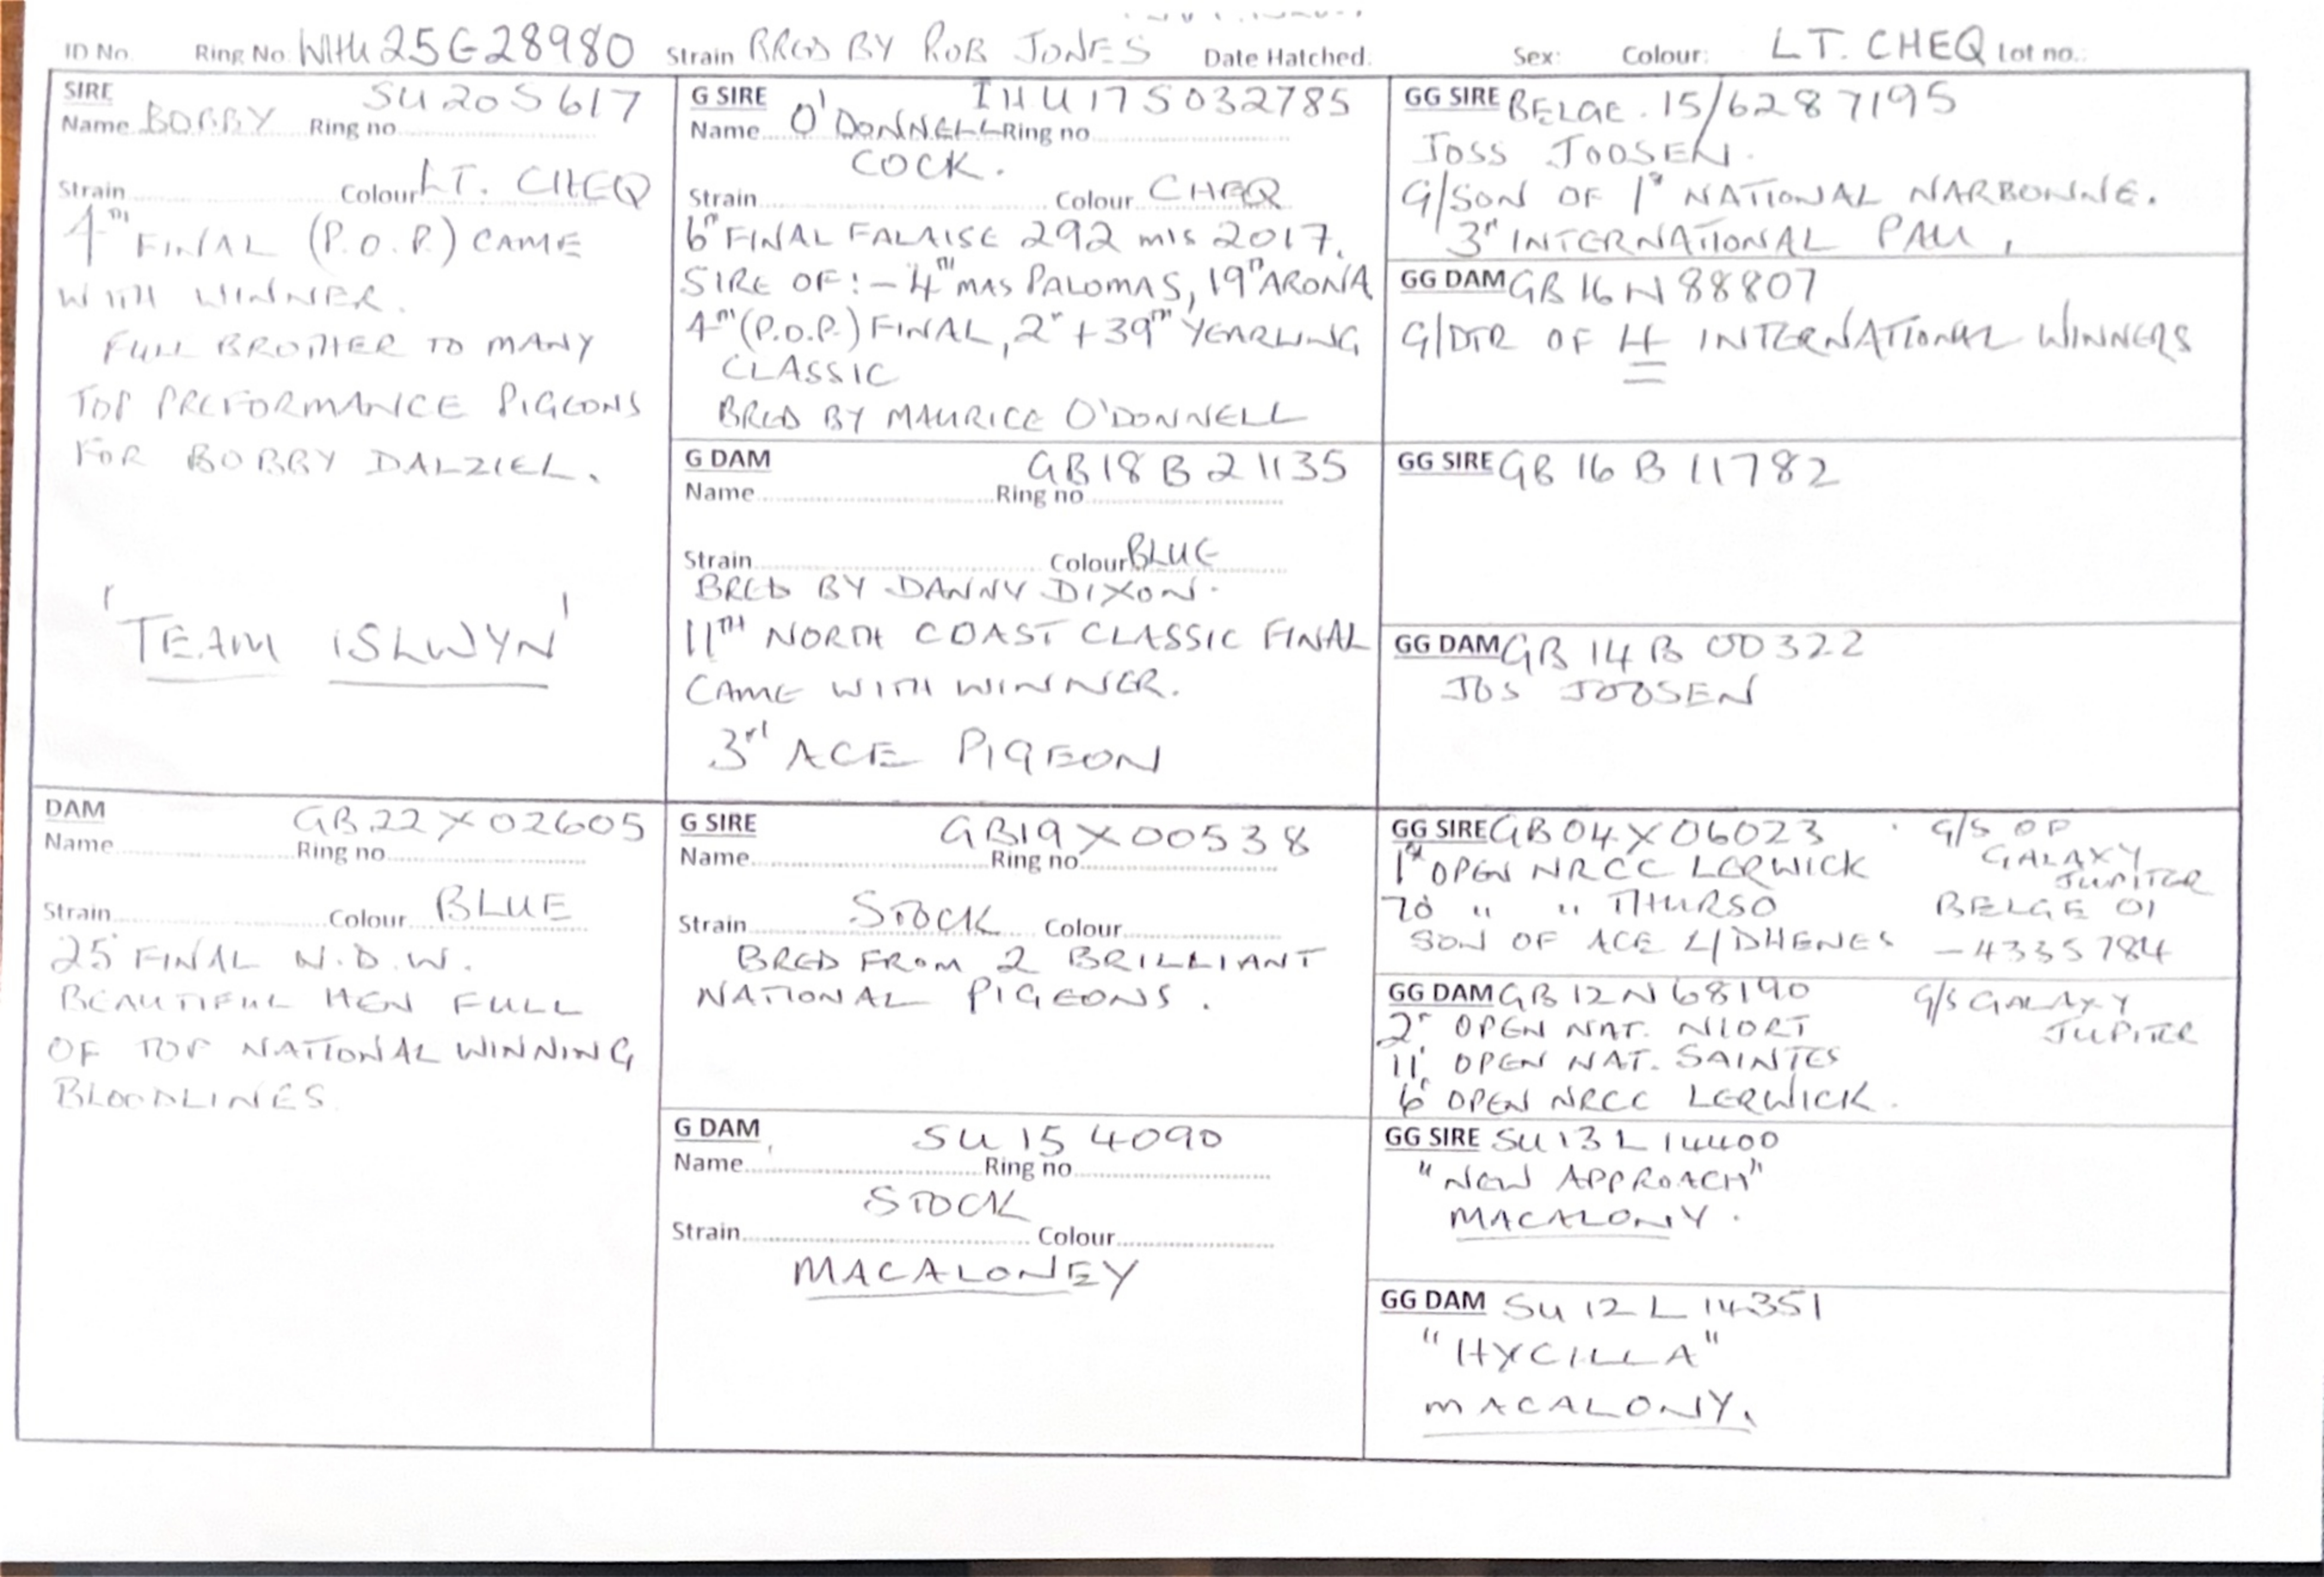 ID No. Ring No. WHU 25E28980 Strain BRED BY ROB JONES Date Hatched. Sex: Colour: LT. CHEQ Lot no.:
SIRE SU20S617
Name BOBBY Ring no
Strain Colour LT. CHEQ
4TH FINAL (P.O.P.) CAME
WITH WINNER.
FULL BROTHER TO MANY
TOP PREFORMANCE PIGEONS
FOR BOBBY DALZIEL.
'TEAM ISLWYN'
G SIRE IHU17S032785
Name O'DONNELL Ring no
COCK.
Strain Colour CHEQ
6TH FINAL FALAISE 292 MLS 2017.
SIRE OF:- 4TH MAS PALOMAS, 19TH ARONA
4TH (P.O.P.) FINAL, 2ND + 39TH YEARLING
CLASSIC
BRED BY MAURICE O'DONNELL
G DAM GB18B21135
Name Ring no
Strain Colour BLUE
BRED BY DANNY DIXON.
11TH NORTH COAST CLASSIC FINAL
CAME WITH WINNER.
3rd ACE PIGEON
GG SIRE BELGE. 15/6287195
JOSS JOOSEN.
G/SON OF 1st NATIONAL NARBONNE.
3rd INTERNATIONAL PAU,
GG DAM GB16N88807
G/DTR OF 4 INTERNATIONAL WINNERS
GG SIRE GB 16 B 11782
GG DAM GB 14 B 00322
JOS JOOSEN
DAM GB22X02605
Name Ring no
Strain Colour BLUE
25 FINAL N.D.W.
BEAUTIFUL HEN FULL
OF TOP NATIONAL WINNING
BLOODLINES.
G SIRE GB19X00538
Name Ring no
Strain STOCK Colour
BRED FROM 2 BRILLIANT
NATIONAL PIGEONS.
G DAM SU 15 4090
Name Ring no
STOCK
Strain Colour
MACALONEY
GG SIRE GB04X06023 . G/S OF
GALAXY
JUPITER
1st OPEN NRCC LERWICK
70 " " THURSO BELGE 01
SON OF ACE L/DHENES -4335784
GG DAM GB12N68190 G/S GALAXY
JUPITER
2nd OPEN NAT. NIORT
11 OPEN NAT. SAINTES
6 OPEN NRCC LERWICK.
GG SIRE SU13L14400
"NEW APPROACH"
MACALONY.
GG DAM SU 12 L 14351
"HYCILLA"
MACALONY.